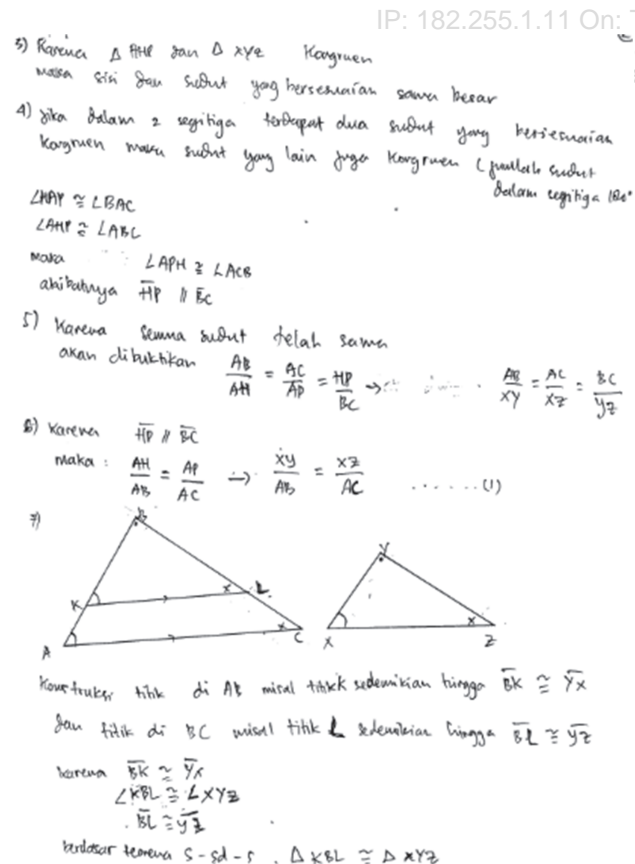 IP: 182.255.1.11 On:
3) Karena △ AHP dan △ XYZ Kongruen
maka sisi dan sudut yang bersesuaian sama besar
4) Jika dalam 2 segitiga terdapat dua sudut yang bersesuaian
kongruen maka sudut yang lain juga kongruen (jumlah sudut
dalam segitiga 180°
∠HAP ≅ ∠BAC
∠AHP ≅ ∠ABC
maka ∠APH ≅ ∠ACB
akibatnya HP // BC
5) Karena semua sudut telah sama
akan dibuktikan AB/AH = AC/AP = HP/BC → AB/XY = AC/XZ = BC/YZ
6) Karena HP // BC
maka : AH/AB = AP/AC → XY/AB = XZ/AC ........(1)
7)
B
Y
K
L
x
x
x
A
C
X
Z
Konstruksi titik di AB misal titik K sedemikian hingga BK ≅ YX
dan titik di BC misal titik L sedemikian hingga BL ≅ YZ
karena BK ≅ YX
∠KBL ≅ ∠XYZ
BL ≅ YZ
berdasar teorema S-sd-S, △ KBL ≅ △ XYZ